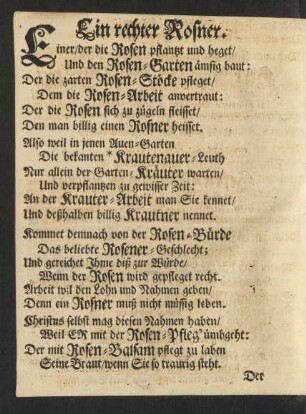 Ein rechter Rosner.
Einer/der die Rosen pflantzt und heget/
Und den Rosen-Garten ämsig baut:
Der die zarten Rosen-Stöcke pfleget/
Dem die Rosen-Arbeit anvertraut:
Der die Rosen sich zu zügeln fleisset/
Den man billig einen Rosner heisset.
Also weil in jenen Auen-Garten
Die bekanten *Krautenauer-Leuth
Nur allein der Garten-Kräuter warten/
Und verpflantzen zu gewisser Zeit:
An der Krauter-Arbeit man Sie kennet/
Und deßhalben billig Krautner nennet.
Kommet demnach von der Rosen-Bürde
Das beliebte Rosener-Geschlecht;
Und gereichet Ihme diß zur Würde/
Wenn der Rosen wird gepfleget recht.
Arbeit wil den Lohn und Nahmen geben/
Denn ein Rosner muß nicht müssig leben.
Christus selbst mag diesen Nahmen haben/
Weil ER mit der Rosen-Pfleg' ümbgeht:
Der mit Rosen-Balsam pflegt zu laben
Seine Braut/wenn Sie so traurig steht.
Der